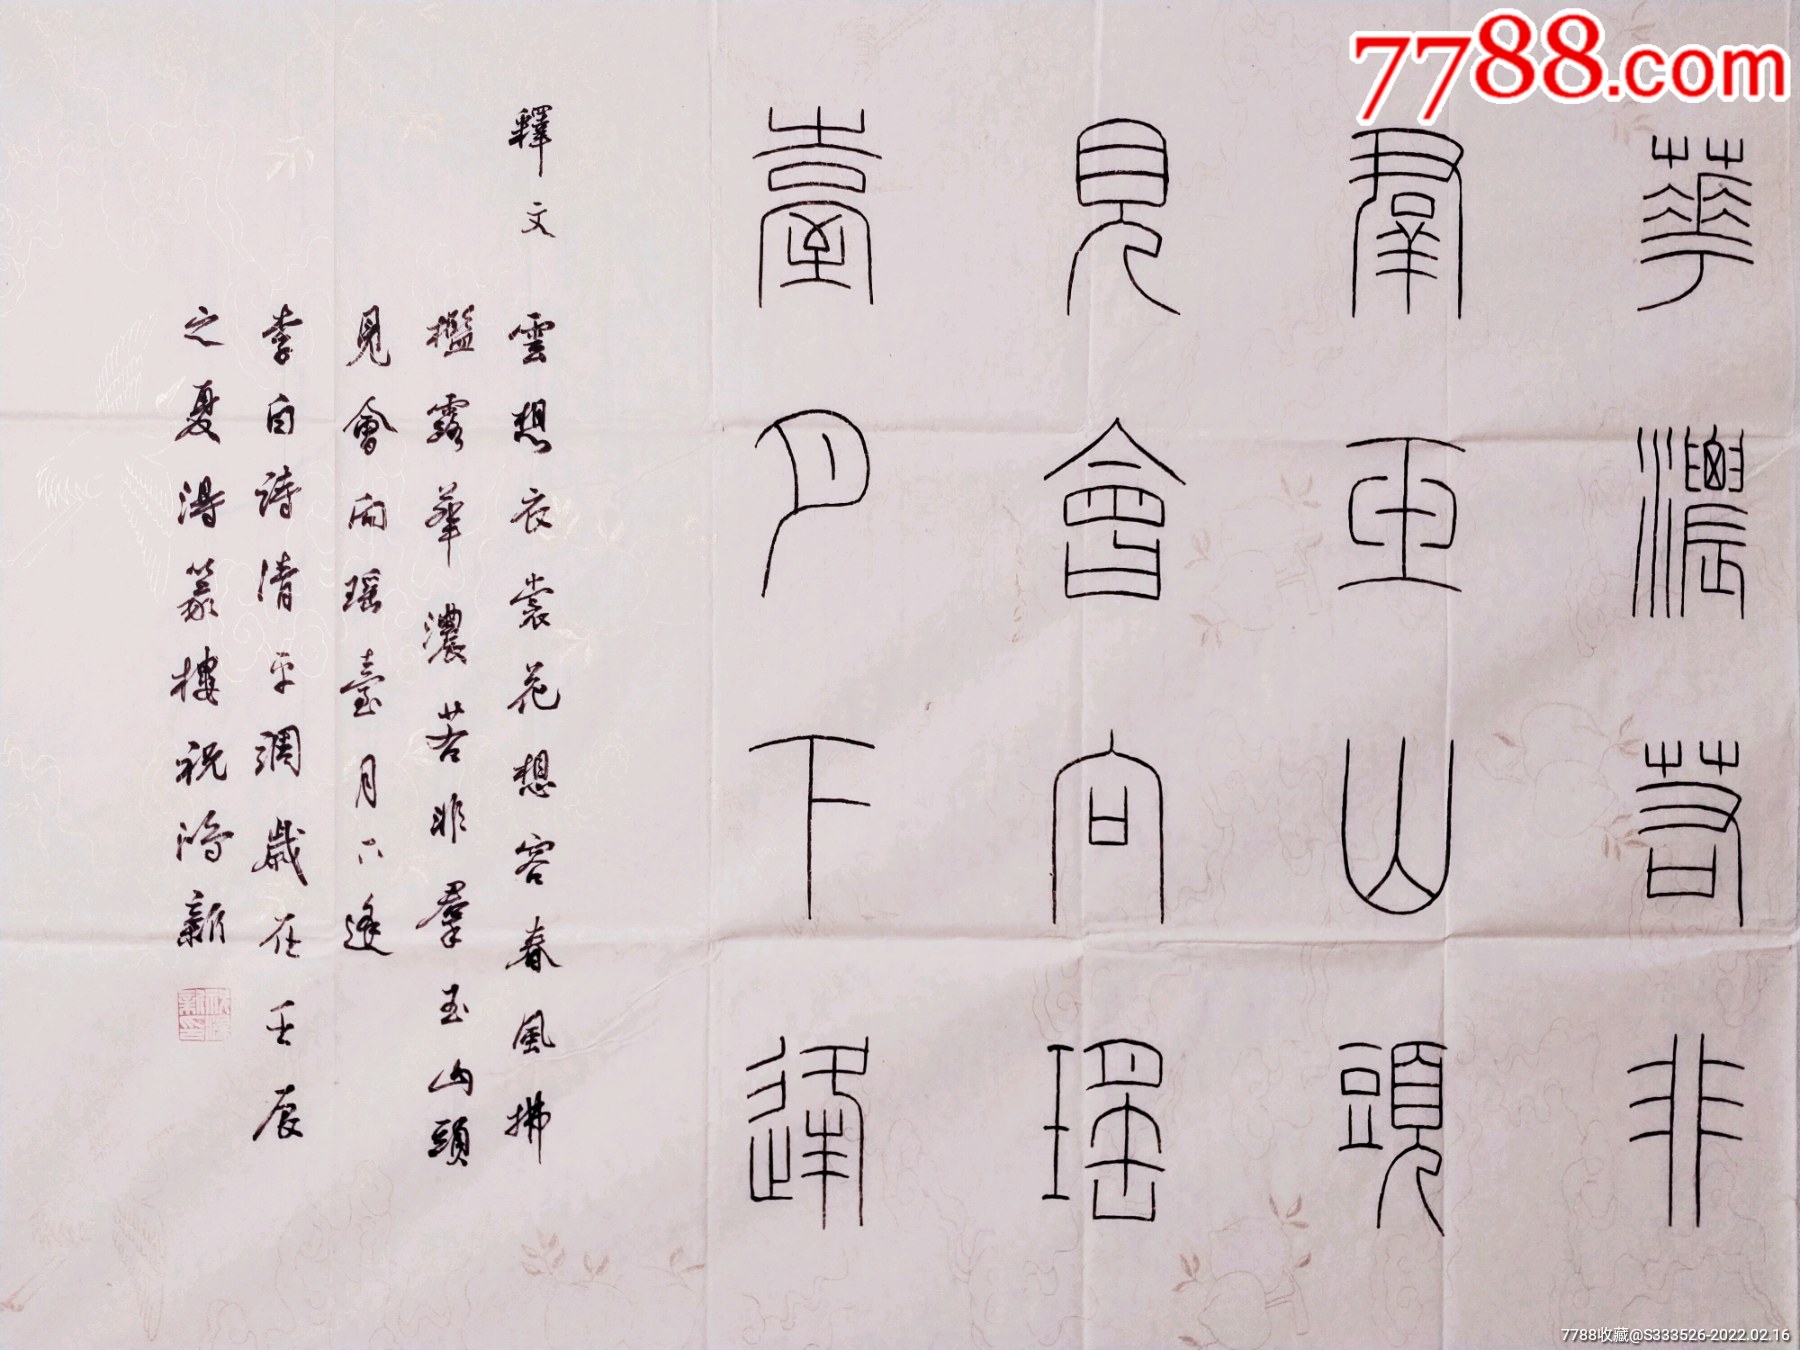 7788.com
華濃若非
羣玉山頭
見會向瑤
臺月下逢
釋文
雲想衣裳花想容春風拂
檻露華濃若非羣玉山頭
見會向瑶臺月下逢
李白詩清平調歲在壬辰
之夏得篆樓祝鴻新
7788收藏@S333526-2022.02.16